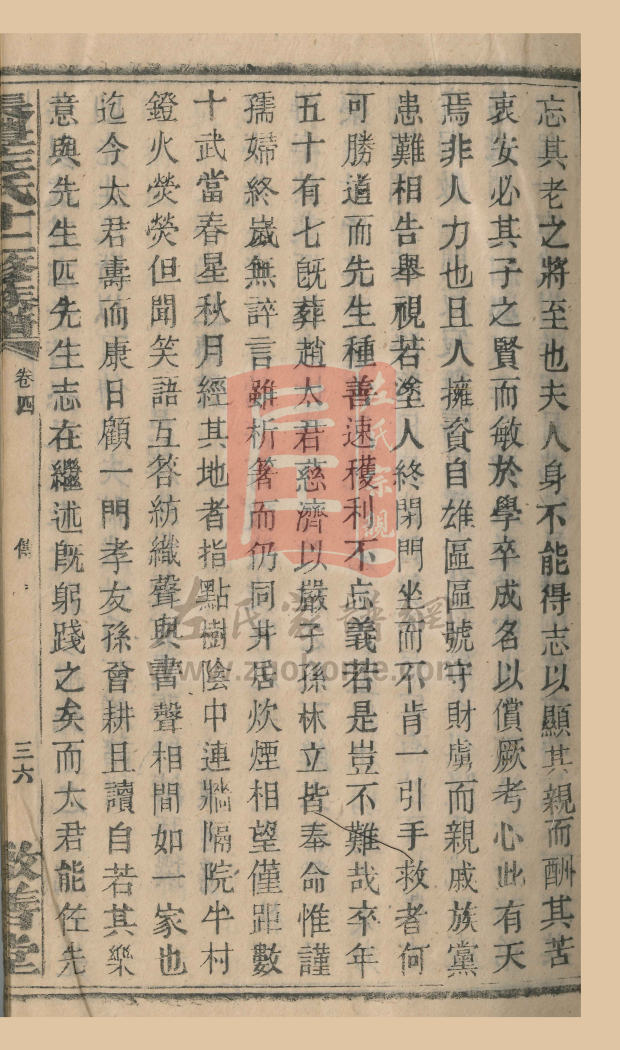 忘其老之將至也夫人身不能得志以顯其親而酬其苦
衷安必其子之賢而敏於學卒成名以償厥考心此有天
焉非人力也且人擁資自雄區區號守財虜而親戚族黨
患難相告舉視若塗人終閉門坐而不肯一引手救者何
可勝道而先生種善速穫利不忘義若是豈不難哉卒年
五十有七旣葬趙太君慈濟以嚴子孫林立皆奉命惟謹
孺婦終歲無誶言雖析箸而仍同井居炊煙相望僅距數
十武當春星秋月經其地者指點樹陰中連牆隔院半村
鐙火熒熒但聞笑語互答紡織聲與書聲相間如一家也
迄今太君壽而康日顧一門孝友孫曾耕且讀自若其樂
意與先生匹先生志在繼述旣躬踐之矣而太君能佐先
氏十二修族譜
卷四
三六
敦善堂
左氏宗親
www.zuozongme.com